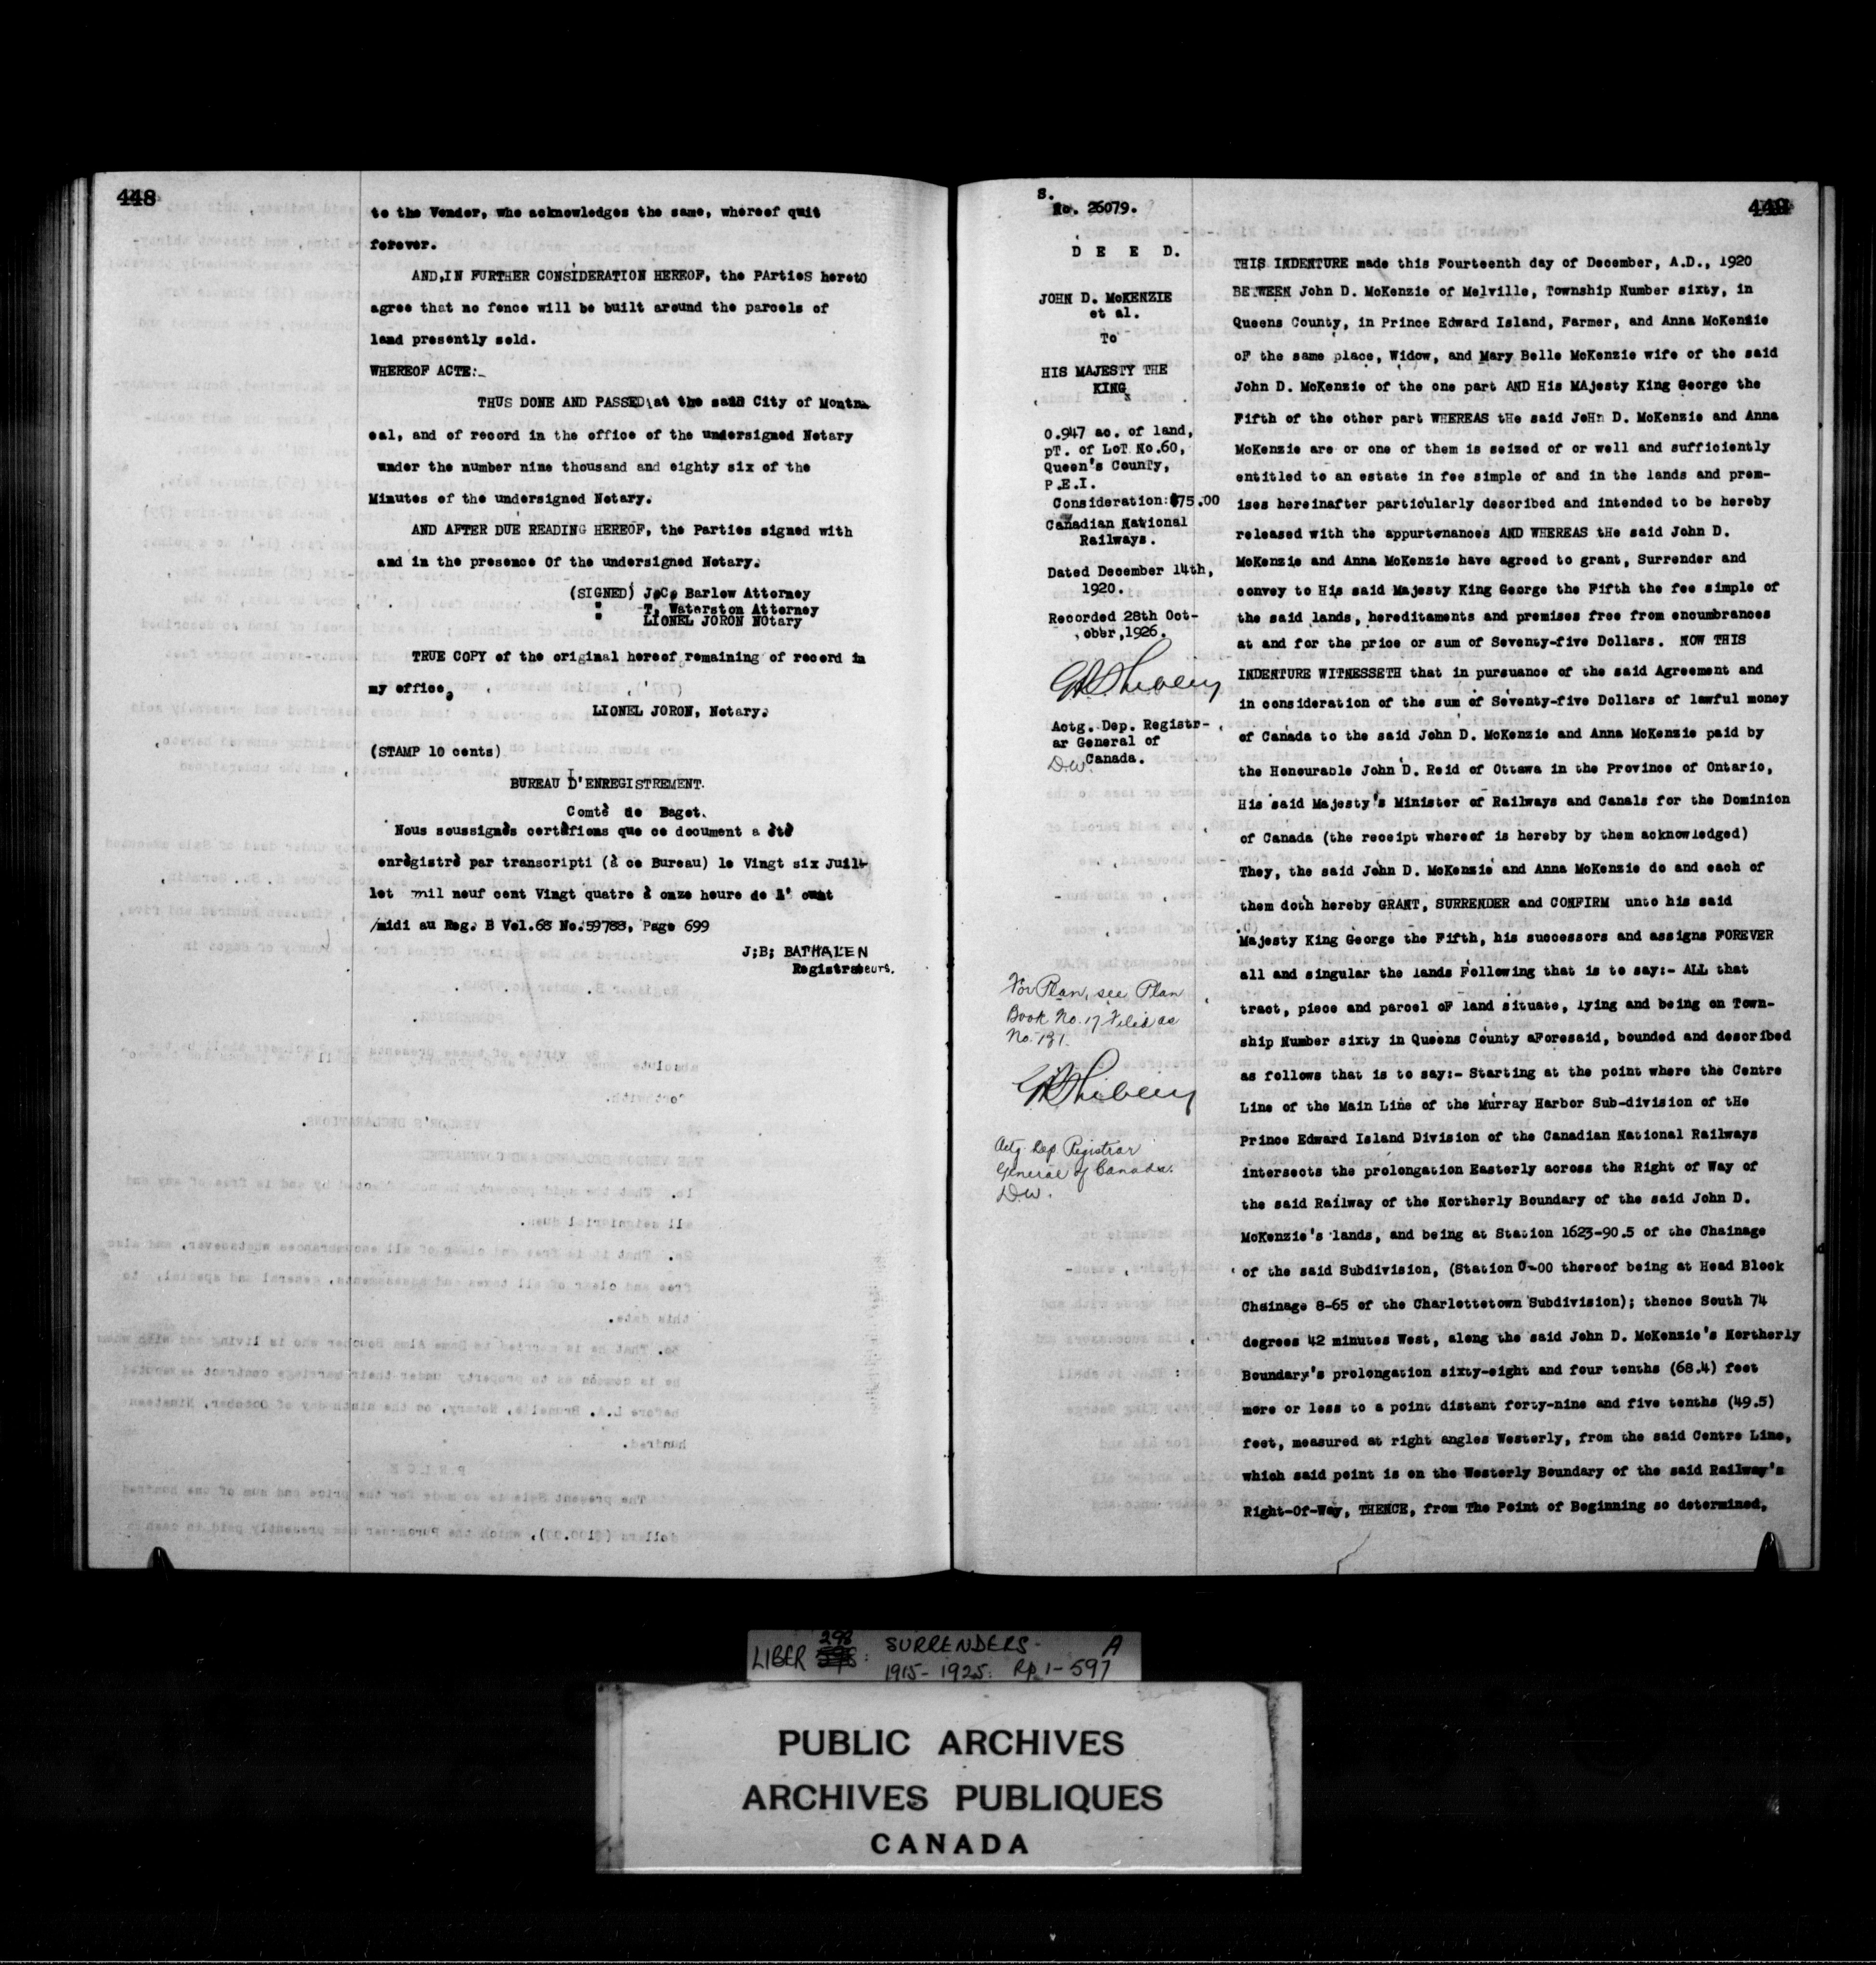 448
to the Vender, who acknowledges the same, whereof quit
forever.
AND,IN FURTHER CONSIDERATION HEREOF, the PArtieS heretO
agree that no fence will be built around the parcels of
land presently sold.
WHEREOF ACTE:_
THUS DONE AND PASSED at the said City of Montre
eal, and of record in the office of the undersigned Notary
under the number nine thousand and eighty six of the
Minutes of the undersigned Notary.
AND AFTER DUE READING HEREOF, the Parties signed with
and in the presence Of the undersigned Notary.
(SIGNED) J.C. Barlow Attorney
" T. Waterston Attorney
" LIONEL JORON NOtary
TRUE COPY of the original hereof remaining of record in
my office,
LIONEL JORON, Notary.
(STAMP 10 cents)
BUREAU D'ENREGISTREMENT.
Comtè de Bagot.
Nous soussignès certèfions que ce document a ètè
enrègistrè par transcripti (à ce Bureau) le Vingt six Juil-
let mil neuf cent Vingt quatre à onze heure de l'
/midi au Reg. B Vol.68 No.59783, Page 699
J;B; BATHALEN
Registrateurs.
S.
No. 26079.
449
D E E D.
JOHN D. McKENZIE
et al.
To
HIS MAJESTY THE
KING
0.947 ac. of land,
pT. of LoT No.60,
Queen's CounTy,
P.E.I.
Consideration:$75.00
Canadian National
Railways.
Dated December 14th,
1920.
Recorded 28th Oct-
ober,1926.
Actg. Dep. Registr-
ar General of
Canada.
D.W.
For Plan, see Plan
Book No. 17 Filed as
No. 131.
Actg. Dep. Registrar
General of Canada.
D.W.
THIS INDENTURE made this Fourteenth day of December, A.D., 1920
BETWEEN John D. McKenzie of Melville, Township Number sixty, in
Queens County, in Prince Edward Island, Farmer, and Anna McKenzie
oF the same place, Widow, and Mary Belle McKenzie wife of the said
John D. McKenzie of the one part AND His MAjesty King George the
Fifth of the other part WHEREAS tHe said JoHn D. McKenzie and Anna
McKenzie are or one of them is seized of or well and sufficiently
entitled to an estate in fee simple of and in the lands and prem-
ises hereinafter particularly described and intended to be hereby
released with the appurtenances AND WHEREAS tHe said John D.
McKenzie and Anna McKenzie have agreed to grant, Surrender and
convey to His said Majesty King George the Fifth the fee simple of
the said lands, hereditaments and premises free from encumbrances
at and for the price or sum of Seventy-five Dollars. NOW THIS
INDENTURE WITNESSETH that in pursuance of the said Agreement and
in consideration of the sum of Seventy-five Dollars of lawful money
of Canada to the said John D. McKenzie and Anna McKenzie paid by
the Honourable John D. Reid of Ottawa in the Province of Ontario,
His said Majesty's Minister of Railways and Canals for the Dominion
of Canada (the receipt whereof is hereby by them acknowledged)
They, the said John D. McKenzie and Anna McKenzie do and each of
them doth hereby GRANT, SURRENDER and CONFIRM unto his said
Majesty King George the Fifth, his successors and assigns FOREVER
all and singular the lands Following that is to say:- ALL that
tract, piece and parcel oF land situate, lying and being on Town-
ship Number sixty in Queens County aForesaid, bounded and described
as follows that is to say:- Starting at the point where the Centre
Line of the Main Line of the Murray Harbor Sub-division of tHe
Prince Edward Island Division of the Canadian National Railways
intersects the prolongation Easterly across the Right of Way of
the said Railway of the Northerly Boundary of the said John D.
McKenzie's lands, and being at Station 1623-90.5 of the Chainage
of the said Subdivision, (Station 0-00 thereof being at Head Block
Chainage 8-65 of the Charlottetown Subdivision); thence South 74
degrees 42 minutes West, along the said John D. McKenzie's Northerly
Boundary's prolongation sixty-eight and four tenths (68.4) feet
more or less to a point distant forty-nine and five tenths (49.5)
feet, measured at right angles Westerly, from the said Centre Line,
which said point is on the Westerly Boundary of the said Railway's
Right-Of-Way, THENCE, from The Point of Beginning so determined,
LIBER 298: SURRENDERS- A
1915-1925: Pp. 1-597
PUBLIC ARCHIVES
ARCHIVES PUBLIQUES
CANADA